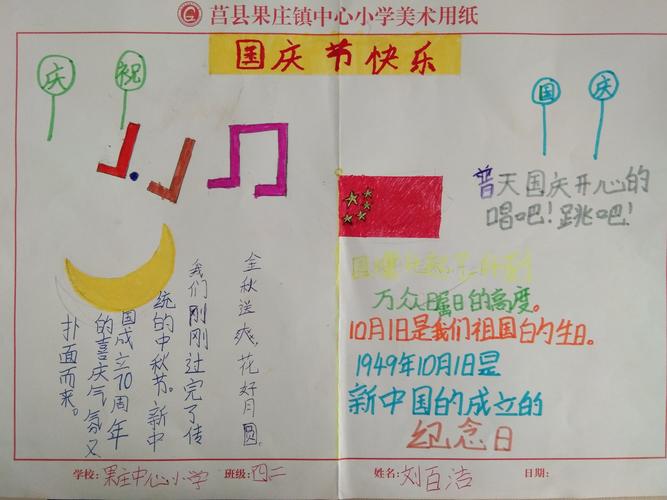 莒县果庄镇中心小学美术用纸
国庆节快乐
庆 祝
国 庆
普天国庆开心的
唱吧！跳吧！
金秋送爽，花好月圆。
我们刚刚过完了传
统的中秋节。新中
国成立70周年
的喜庆气氛又
扑面而来。
万众瞩目的高度。
10月1日是我们祖国的生日。
1949年10月1日是
新中国的成立的
纪念日
学校：果庄中心小学 班级：四二 姓名：刘百洁 日期：